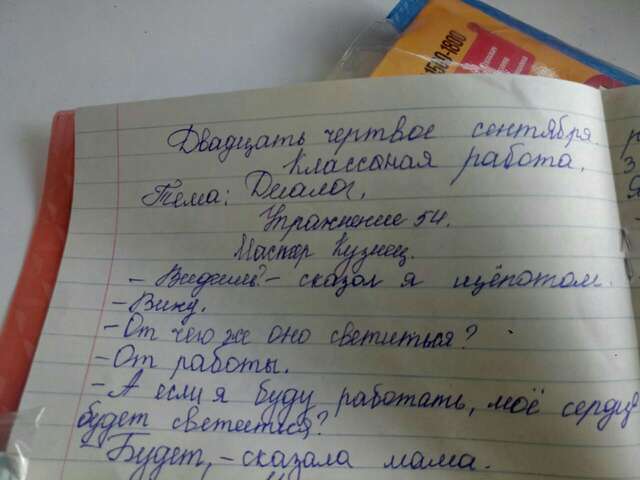 1500-1800
Двадцать чертвое сентября.
Классоная работа.
Тема: Диалог.
Упражнение 54.
Мастер Кузнец.
- Видишь? - сказал я щёпотом.
- Вижу.
- От чего же оно светиться?
- От работы.
- А если я буду работать, моё сердце
будет светиться?
- Будет, - сказала мама.